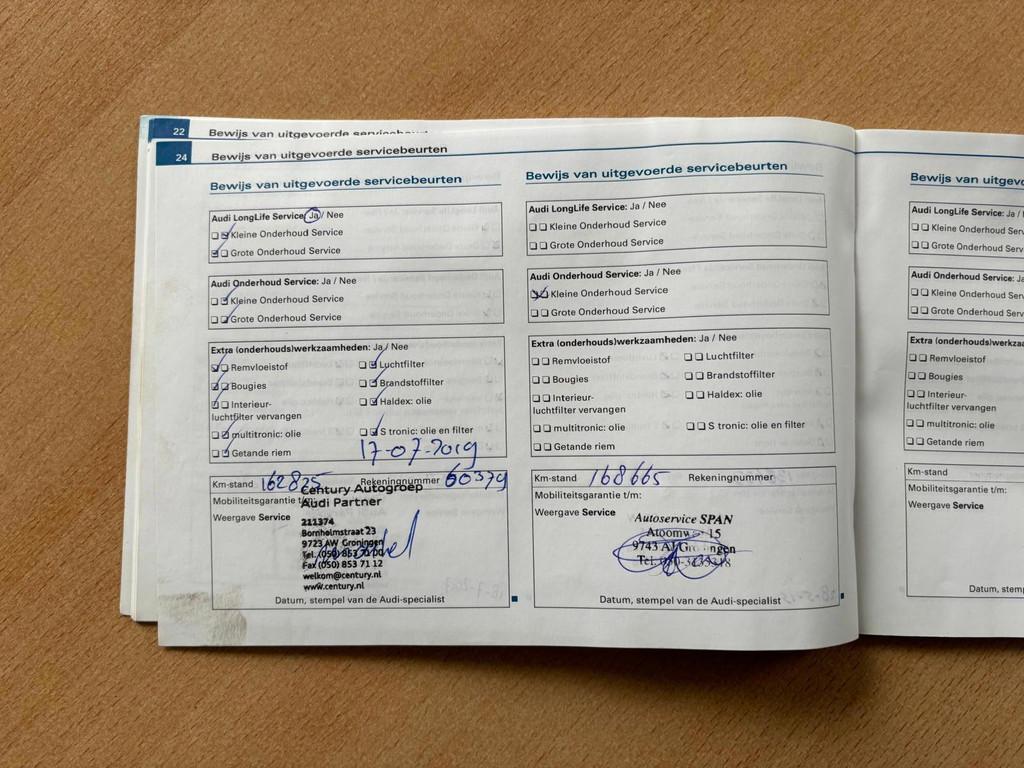 22 Bewijs van uitgevoerde
24 Bewijs van uitgevoerde servicebeurten
Bewijs van uitgevoerde servicebeurten
Audi LongLife Service: Ja / Nee
Kleine Onderhoud Service
Grote Onderhoud Service
Audi Onderhoud Service: Ja / Nee
Kleine Onderhoud Service
Grote Onderhoud Service
Extra (onderhouds)werkzaamheden: Ja / Nee
Remvloeistof Luchtfilter
Bougies Brandstoffilter
Interieur- Haldex: olie
luchtfilter vervangen
multitronic: olie S tronic: olie en filter
Getande riem 17-07-2019
Km-stand 162825 Rekeningnummer 60379
Mobiliteitsgarantie t/m:
Weergave Service
Century Autogroep
Audi Partner
211374
Bornholmstraat 23
9723 AW Groningen
Tel. (050) 853 70 00
Fax (050) 853 71 12
welkom@century.nl
www.century.nl
Datum, stempel van de Audi-specialist
Bewijs van uitgevoerde servicebeurten
Audi LongLife Service: Ja / Nee
Kleine Onderhoud Service
Grote Onderhoud Service
Audi Onderhoud Service: Ja / Nee
Kleine Onderhoud Service
Grote Onderhoud Service
Extra (onderhouds)werkzaamheden: Ja / Nee
Remvloeistof Luchtfilter
Bougies Brandstoffilter
Interieur- Haldex: olie
luchtfilter vervangen
multitronic: olie S tronic: olie en filter
Getande riem
Km-stand 168665 Rekeningnummer
Mobiliteitsgarantie t/m:
Weergave Service
Autoservice SPAN
15
9743
Tel.
Datum, stempel van de Audi-specialist
Bewijs van
Audi LongLife Service: Ja /
Kleine Onderhoud
Grote Onderhoud
Audi Onderhoud Service: Ja
Kleine Onderhoud
Grote Onderhoud
Extra
Remvloeistof
Bougies
Interieur-
luchtfilter vervangen
multitronic: olie
Getande riem
Km-stand
Mobiliteitsgarantie t/m:
Weergave Service
Datum,